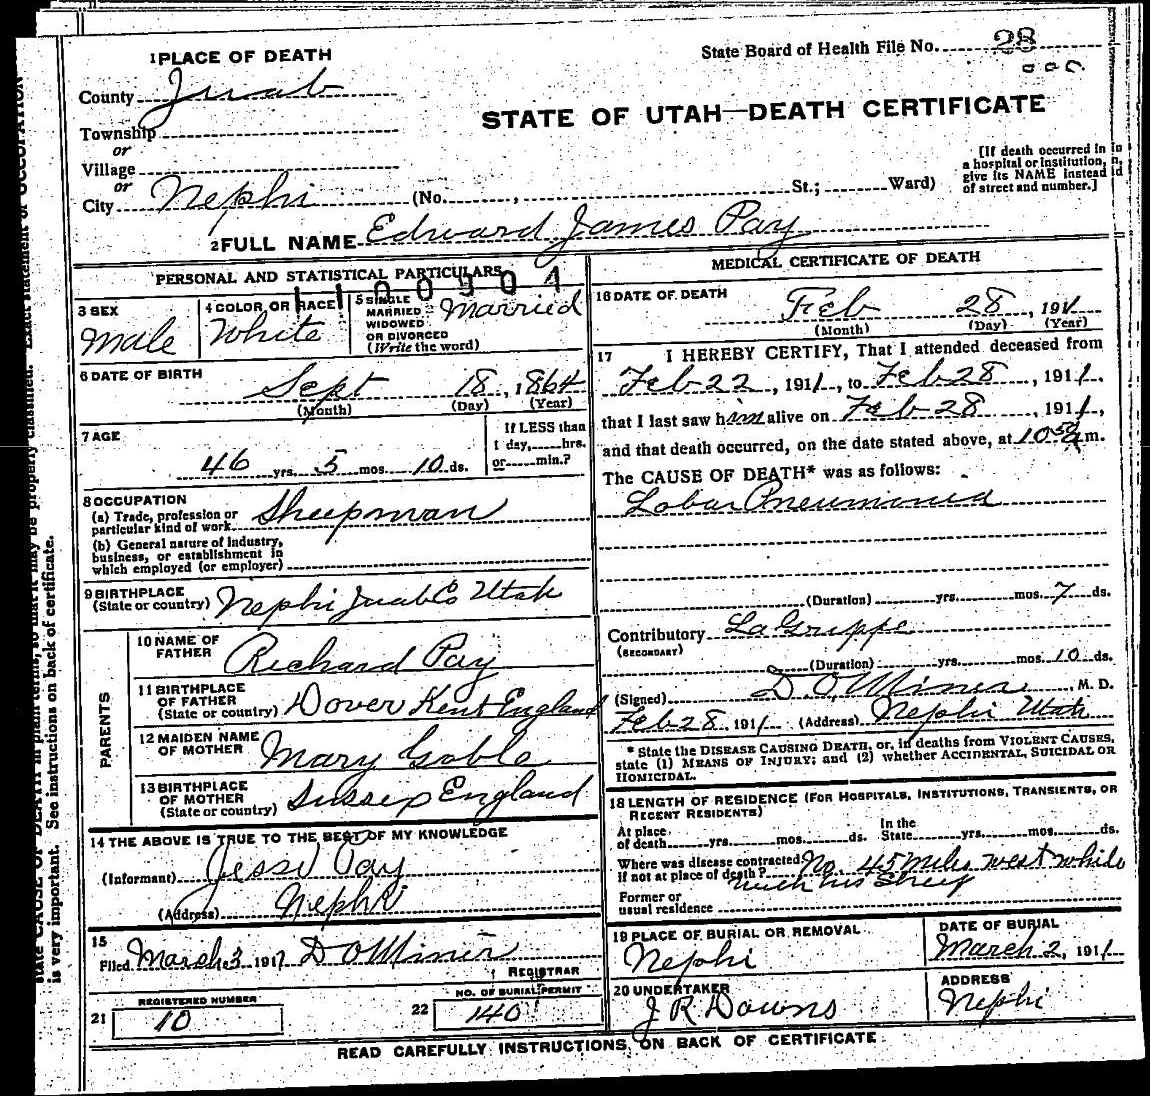 1 PLACE OF DEATH
State Board of Health File No. 28
County Juab
STATE OF UTAH—DEATH CERTIFICATE
Township
or
Village
or
City Nephi (No. , St.; Ward)
[If death occurred in
a hospital or institution,
give its NAME instead
of street and number.]
2 FULL NAME Edward James Pay
PERSONAL AND STATISTICAL PARTICULARS
3 SEX
Male
4 COLOR OR RACE
White
5 SINGLE
MARRIED
WIDOWED
OR DIVORCED
(Write the word)
Married
6 DATE OF BIRTH
Sept 18, 1864
(Month) (Day) (Year)
7 AGE
46 yrs. 5 mos. 10 ds.
If LESS than
1 day, hrs.
or min.?
8 OCCUPATION
(a) Trade, profession or
particular kind of work Sheepman
(b) General nature of industry,
business, or establishment in
which employed (or employer)
9 BIRTHPLACE
(State or country) Nephi Juab Co Utah
PARENTS
10 NAME OF
FATHER Richard Pay
11 BIRTHPLACE
OF FATHER
(State or country) Dover Kent England
12 MAIDEN NAME
OF MOTHER Mary Goble
13 BIRTHPLACE
OF MOTHER
(State or country) Sussex England
14 THE ABOVE IS TRUE TO THE BEST OF MY KNOWLEDGE
(Informant) Jesse Pay
(Address) Nephi
15
Filed March 3 1911 D O Miner
REGISTRAR
21 REGISTERED NUMBER
10
22 NO. OF BURIAL PERMIT
140
MEDICAL CERTIFICATE OF DEATH
16 DATE OF DEATH
Feb 28, 1911
(Month) (Day) (Year)
17 I HEREBY CERTIFY, That I attended deceased from
Feb 22, 1911, to Feb 28, 1911,
that I last saw him alive on Feb 28, 1911,
and that death occurred, on the date stated above, at 10 50 a m.
The CAUSE OF DEATH* was as follows:
Lobar Pneumonia
(Duration) yrs. mos. 7 ds.
Contributory La Grippe
(SECONDARY)
(Duration) yrs. mos. 10 ds.
(Signed) D O Miner, M. D.
Feb 28 1911 (Address) Nephi Utah
* State the DISEASE CAUSING DEATH, or, in deaths from VIOLENT CAUSES,
state (1) MEANS OF INJURY; and (2) whether ACCIDENTAL, SUICIDAL OR
HOMICIDAL.
18 LENGTH OF RESIDENCE (FOR HOSPITALS, INSTITUTIONS, TRANSIENTS, OR
RECENT RESIDENTS)
At place
of death yrs. mos. ds.
In the
State yrs. mos. ds.
Where was disease contracted No 45 miles west while
if not at place of death? with his Sheep
Former or
usual residence
19 PLACE OF BURIAL OR REMOVAL
Nephi
DATE OF BURIAL
March 2, 1911
20 UNDERTAKER
J R Downs
ADDRESS
Nephi
READ CAREFULLY INSTRUCTIONS ON BACK OF CERTIFICATE
is very important. See instructions on back of certificate.